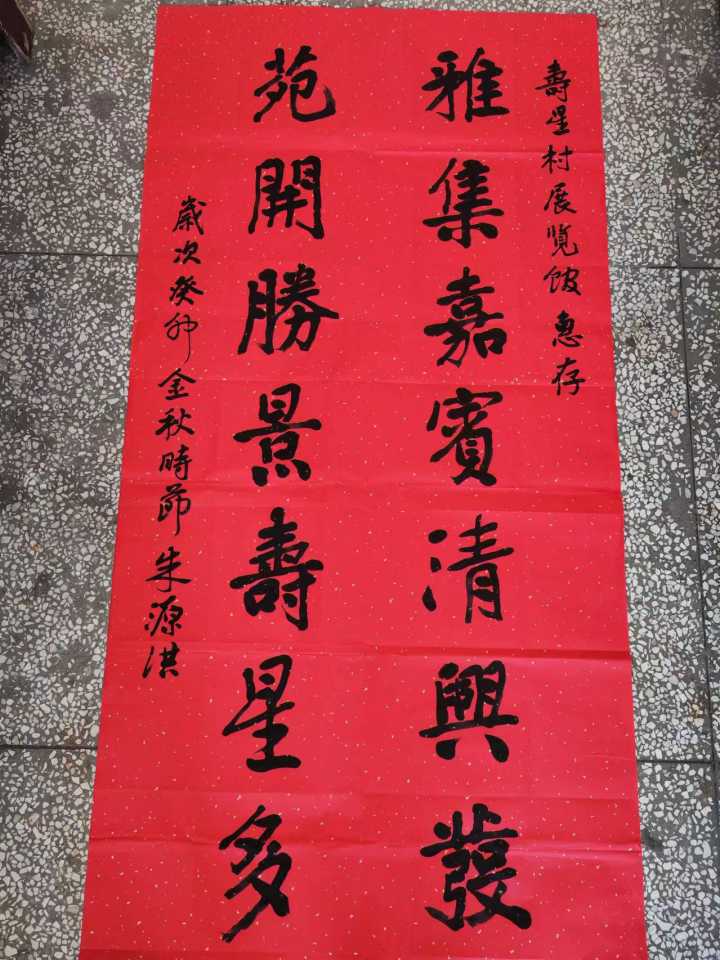 壽星村展览馆惠存
雅集嘉賓清興發
苑開勝景壽星多
歲次癸卯金秋時節朱源淇